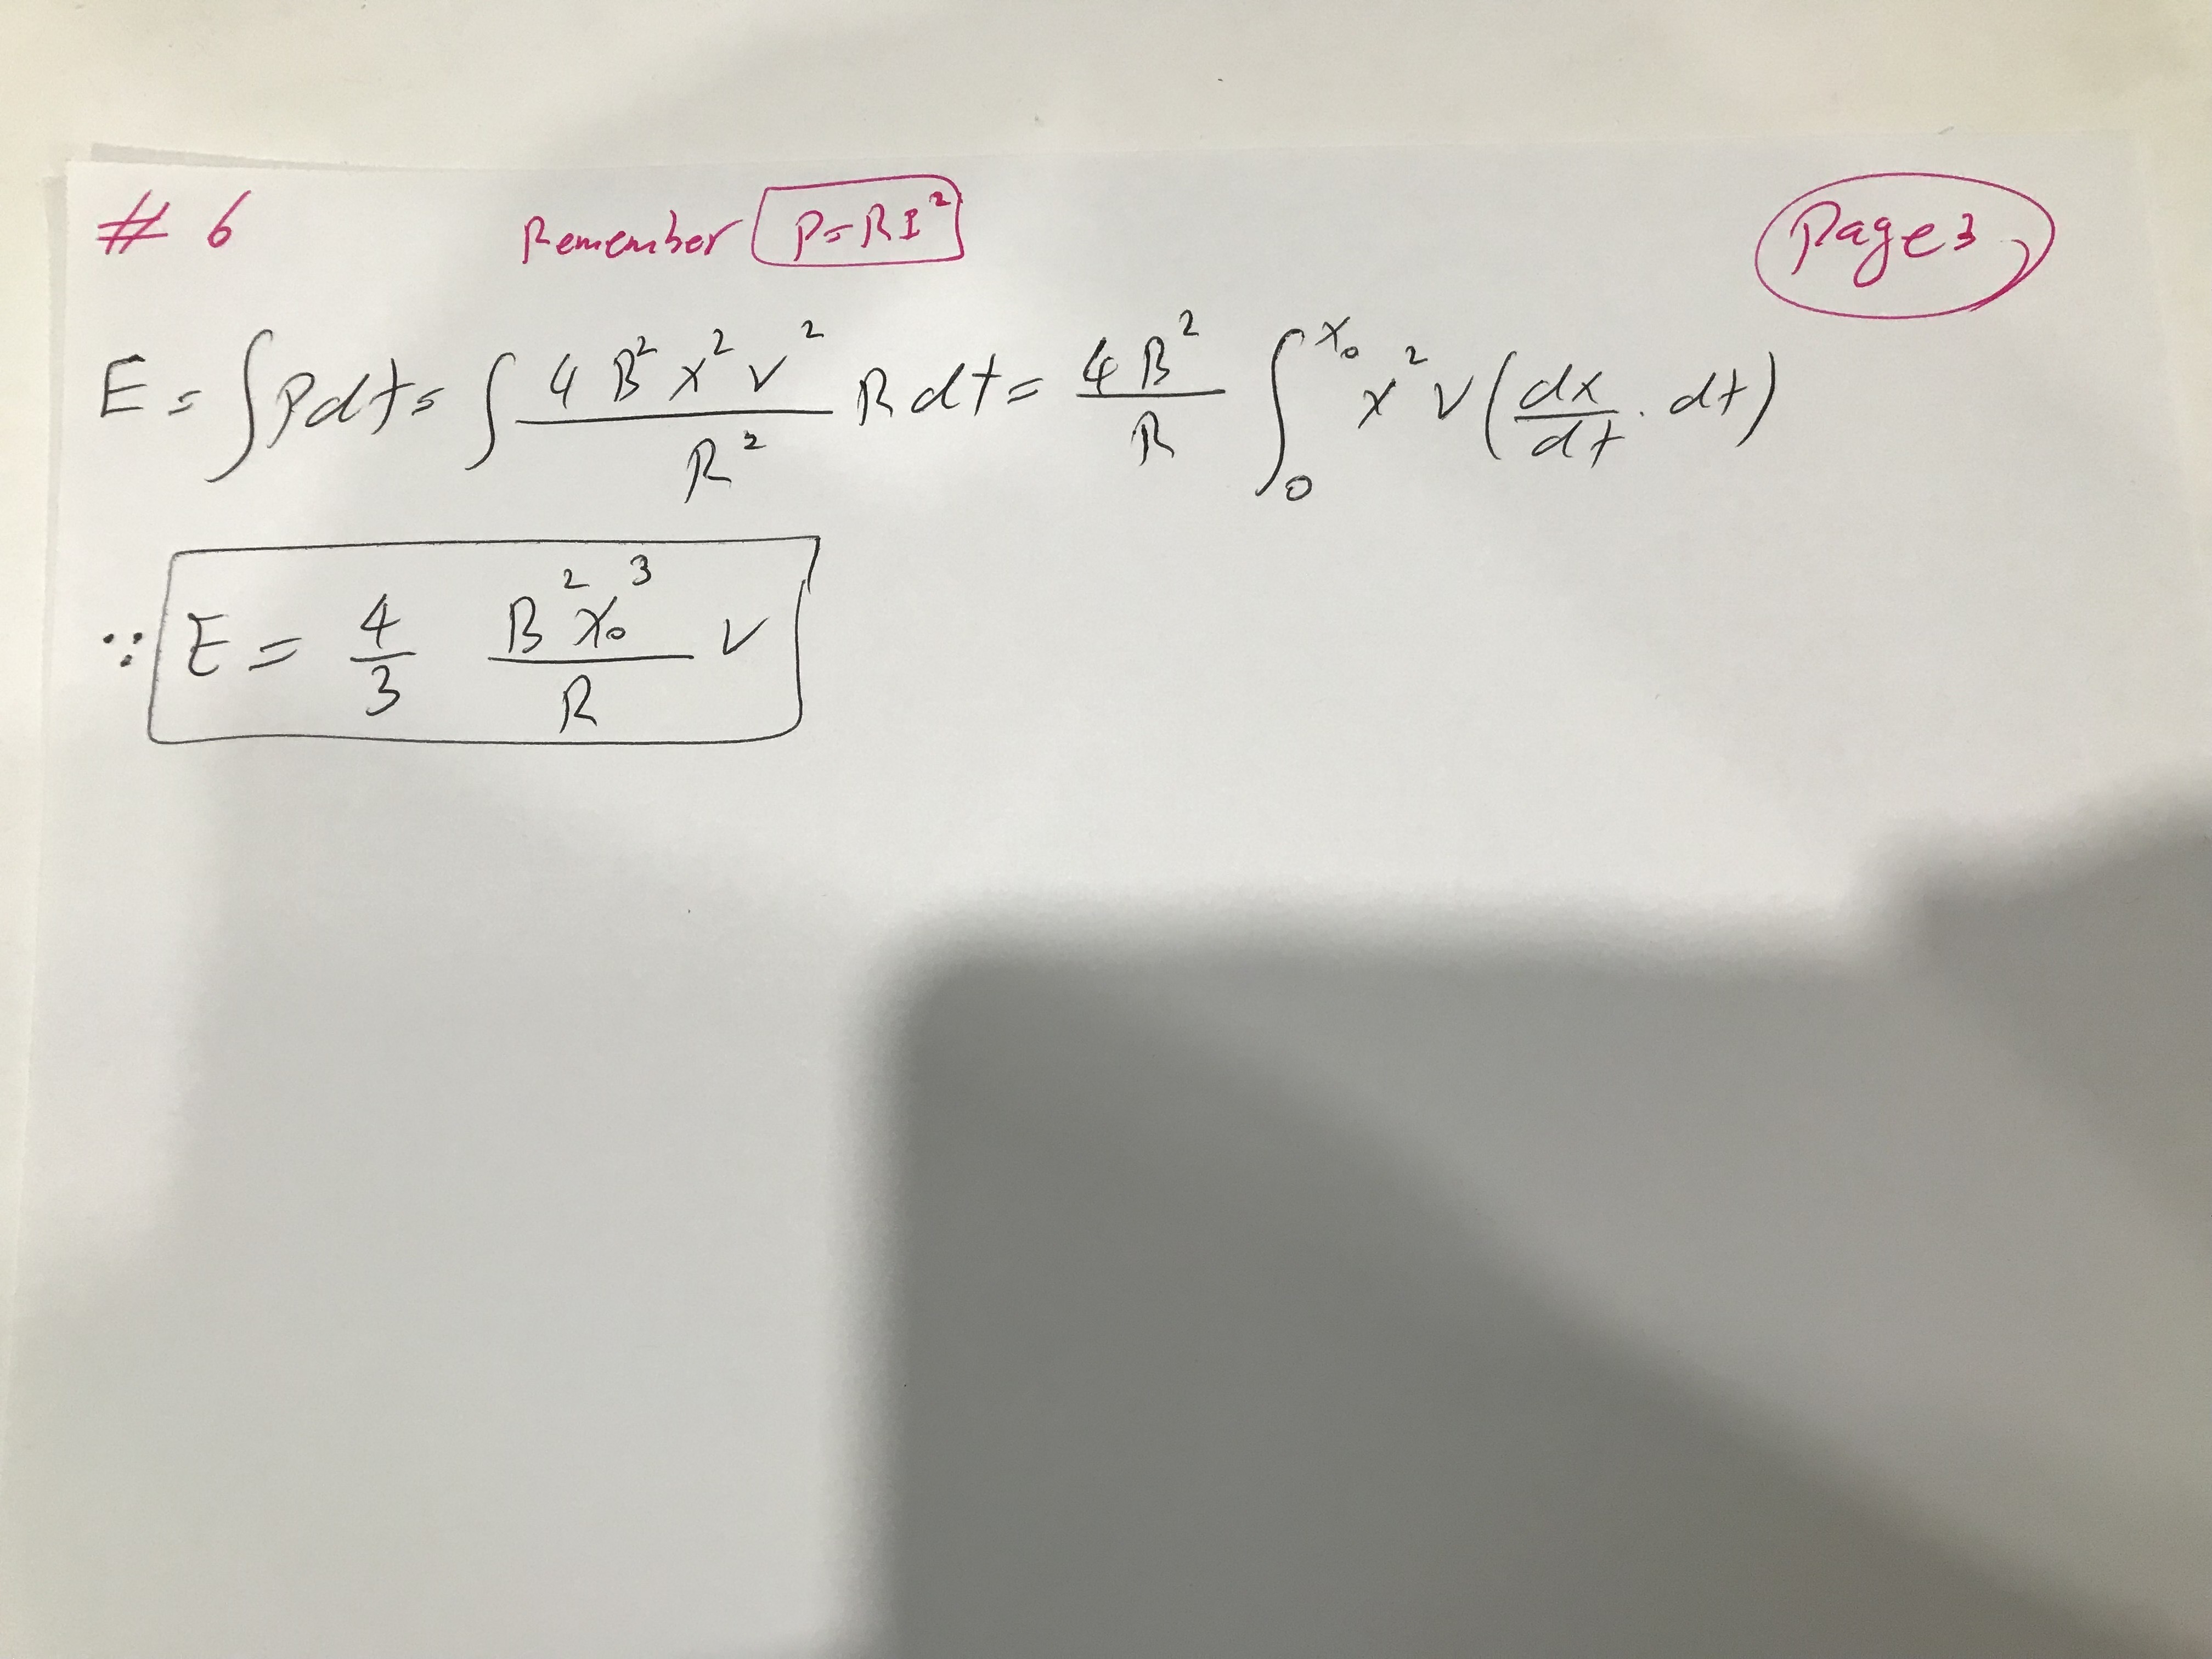 # 6 Remember P=RI² Page 3
E = ∫Pdt = ∫ 4 B² x² v² / R² R dt = 4 B² / R ∫₀^x₀ x² v (dx/dt . dt)
∵ E = 4/3 B² x₀³ / R v